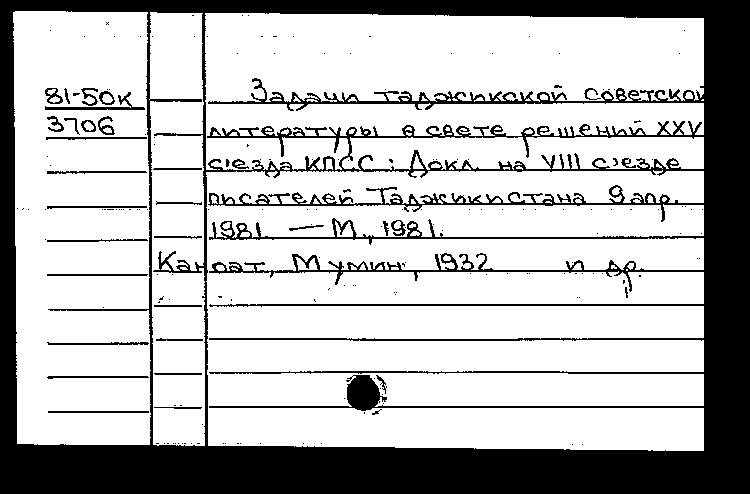 81-50к
3706
Задачи таджикской советской
литературы в свете решений XXV
с'езда КПСС: Докл. на VIII с'езде
писателей Таджикикистана 9 апр.
1981. — М., 1981.
Каноат, Мумин, 1932 и др.